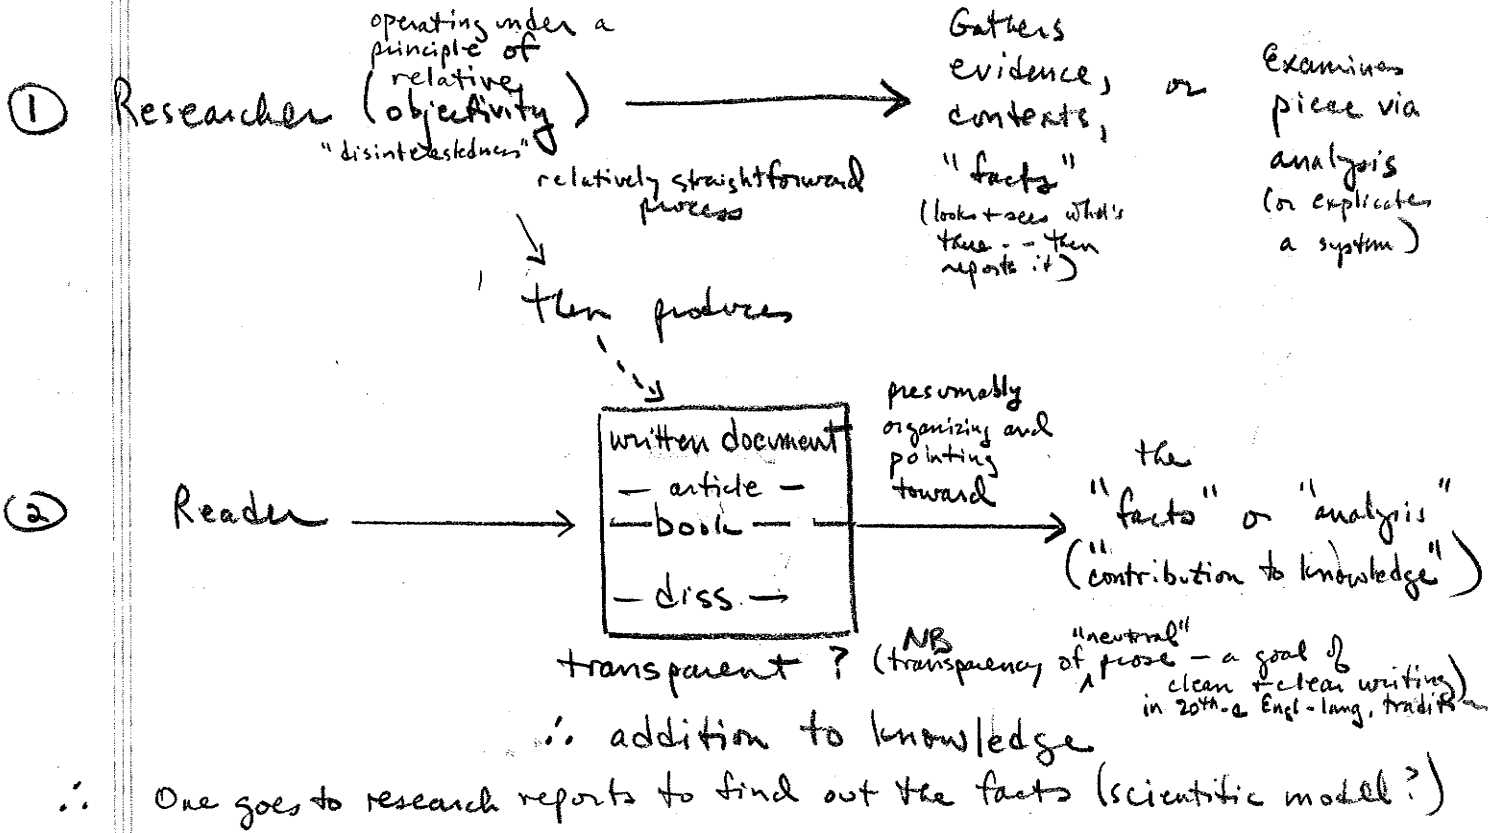 ① Researcher
operating under a
principle of
(relative
objectivity)
"disinterestedness"
Gathers
evidence,
contexts,
"facts"
(looks + sees what's
there -- then
reports it)
or
Examines
piece via
analysis
(or explicates
a system)
relatively straightforward
process
then produces
written document
— article —
— book —
— diss. —
② Reader
presumably
organizing and
pointing
toward
the
"facts" or "analysis"
("contribution to knowledge")
transparent ? (NB transparency of "neutral" prose — a goal of
clean + clear writing
in 20th-c Engl-lang. tradit)
∴ addition to knowledge
∴ One goes to research reports to find out the facts (scientific model?)